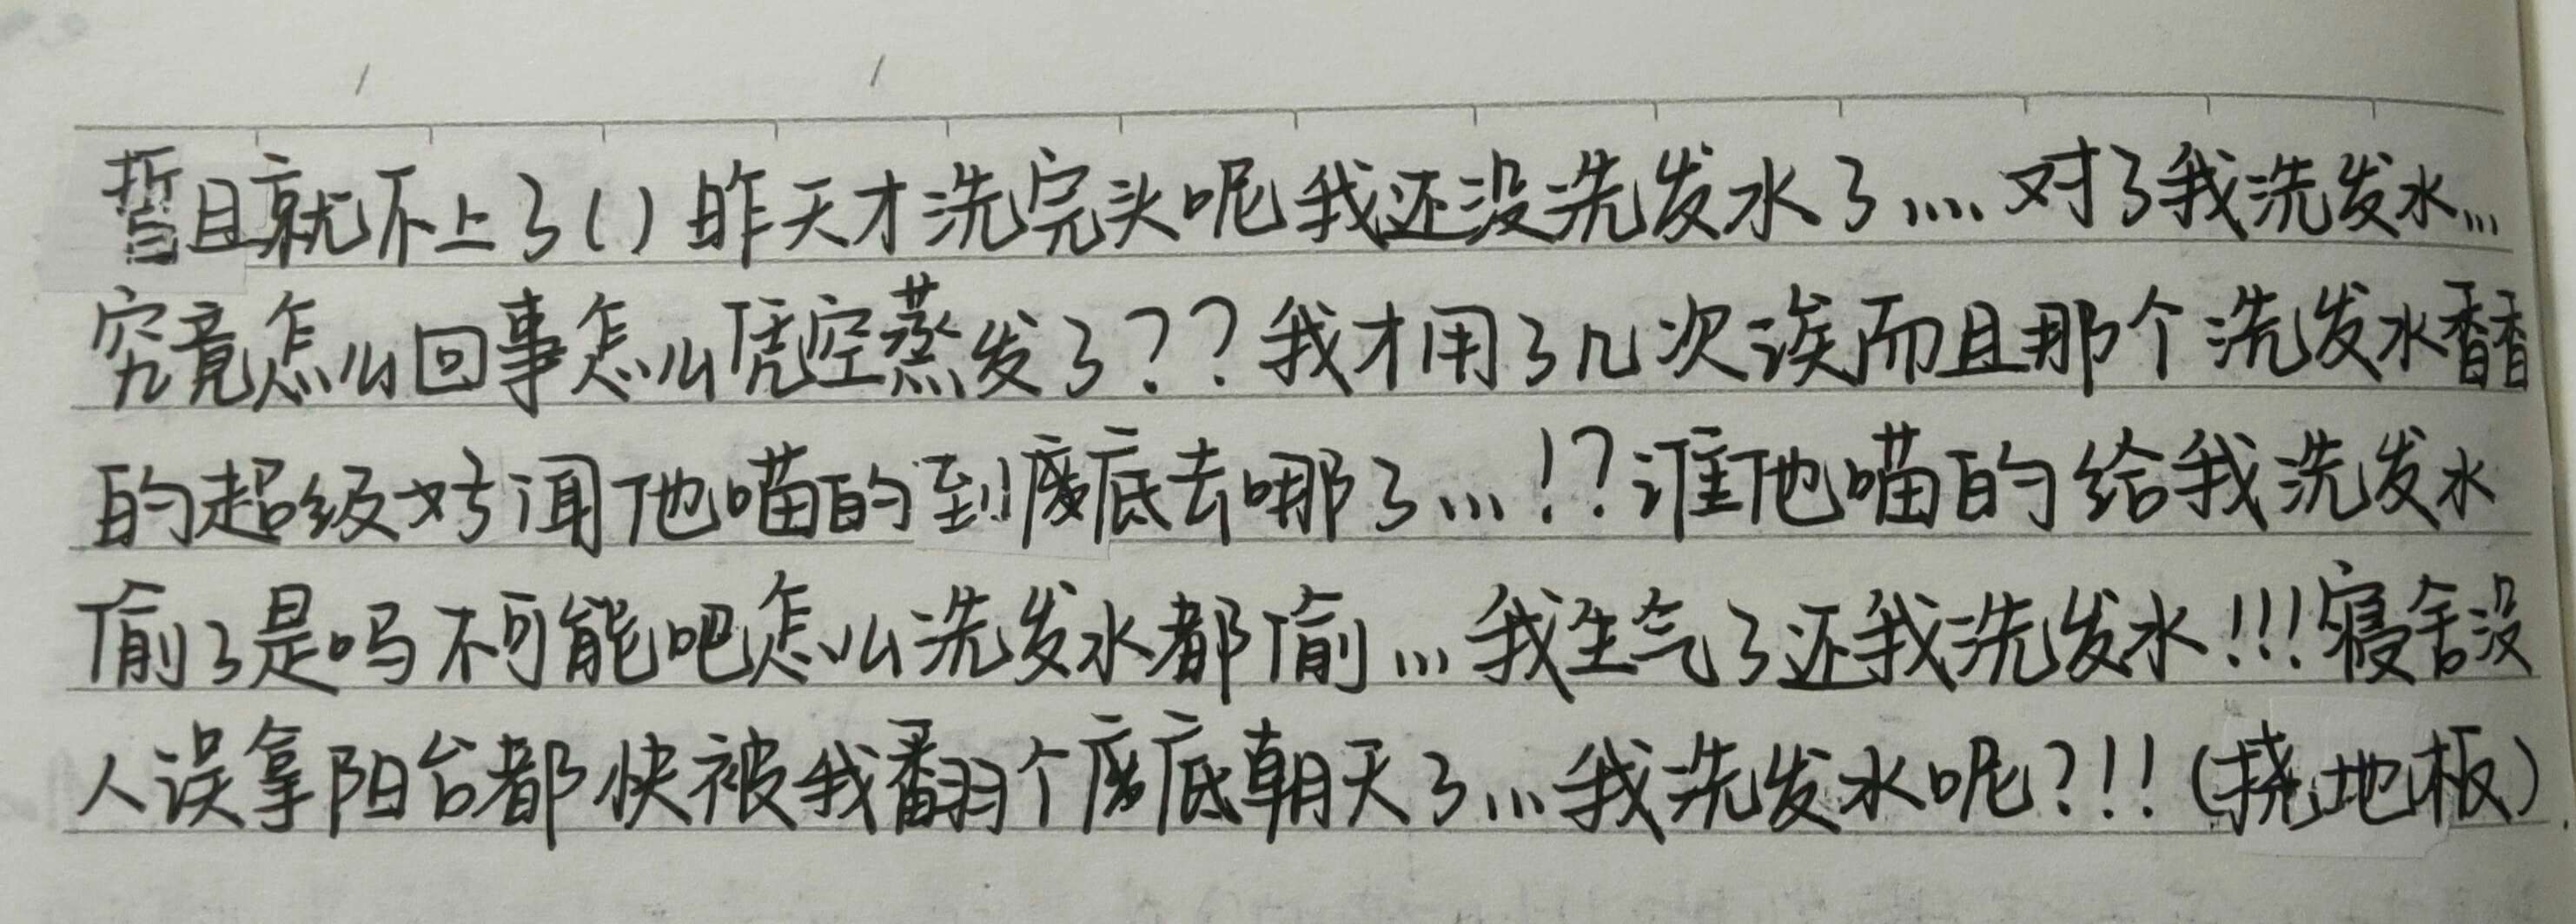 暂且就不上了()昨天才洗完头呢我还没洗发水了....对了我洗发水...
究竟怎么回事怎么凭空蒸发了??我才用了几次诶而且那个洗发水香香
的超级好闻他喵的到底去哪了...!?谁他喵的给我洗发水
偷了是吗不可能吧怎么洗发水都偷...我生气了还我洗发水!!!寝舍没
人误拿阳台都快被我翻个底朝天了...我洗发水呢?!!(挠地板)